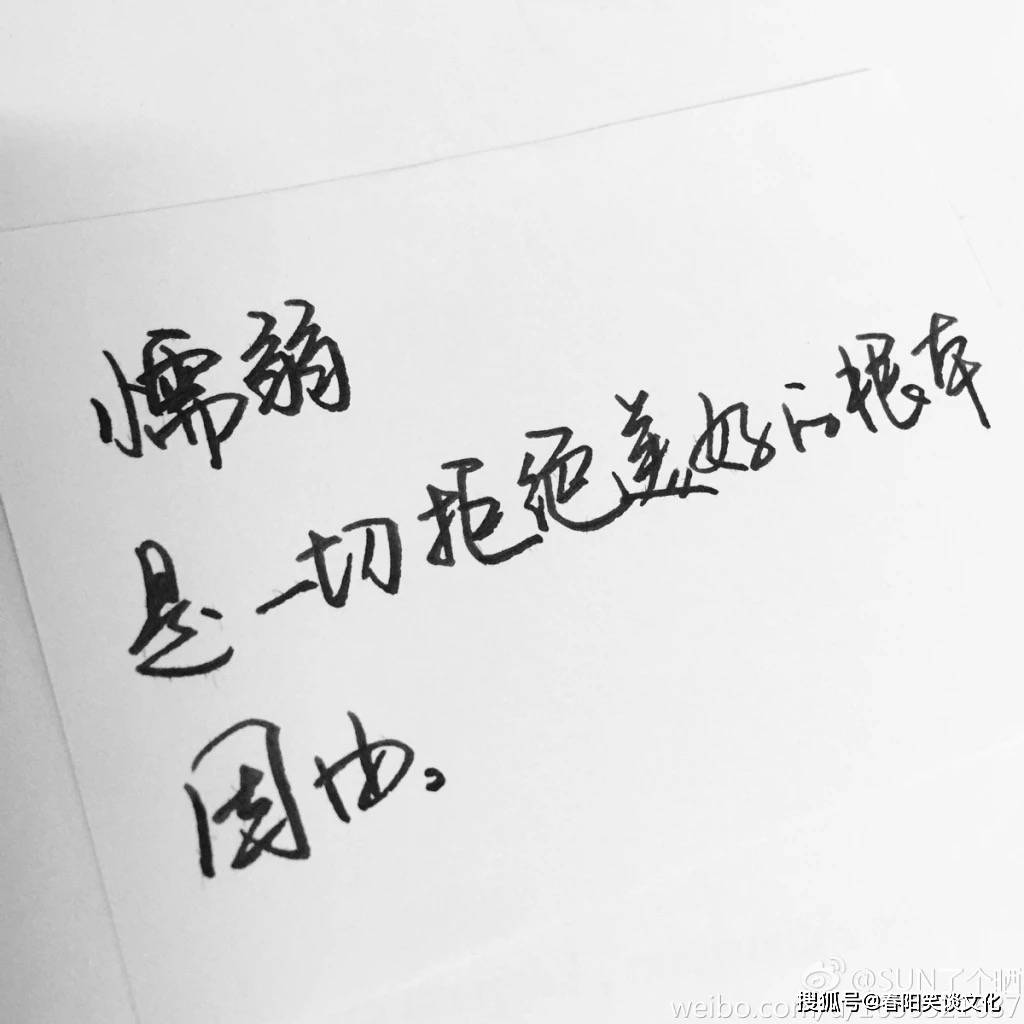 懦弱
是一切拒绝美好的根本
因由。
@SUN了个晒
搜狐号@春阳笑谈文化